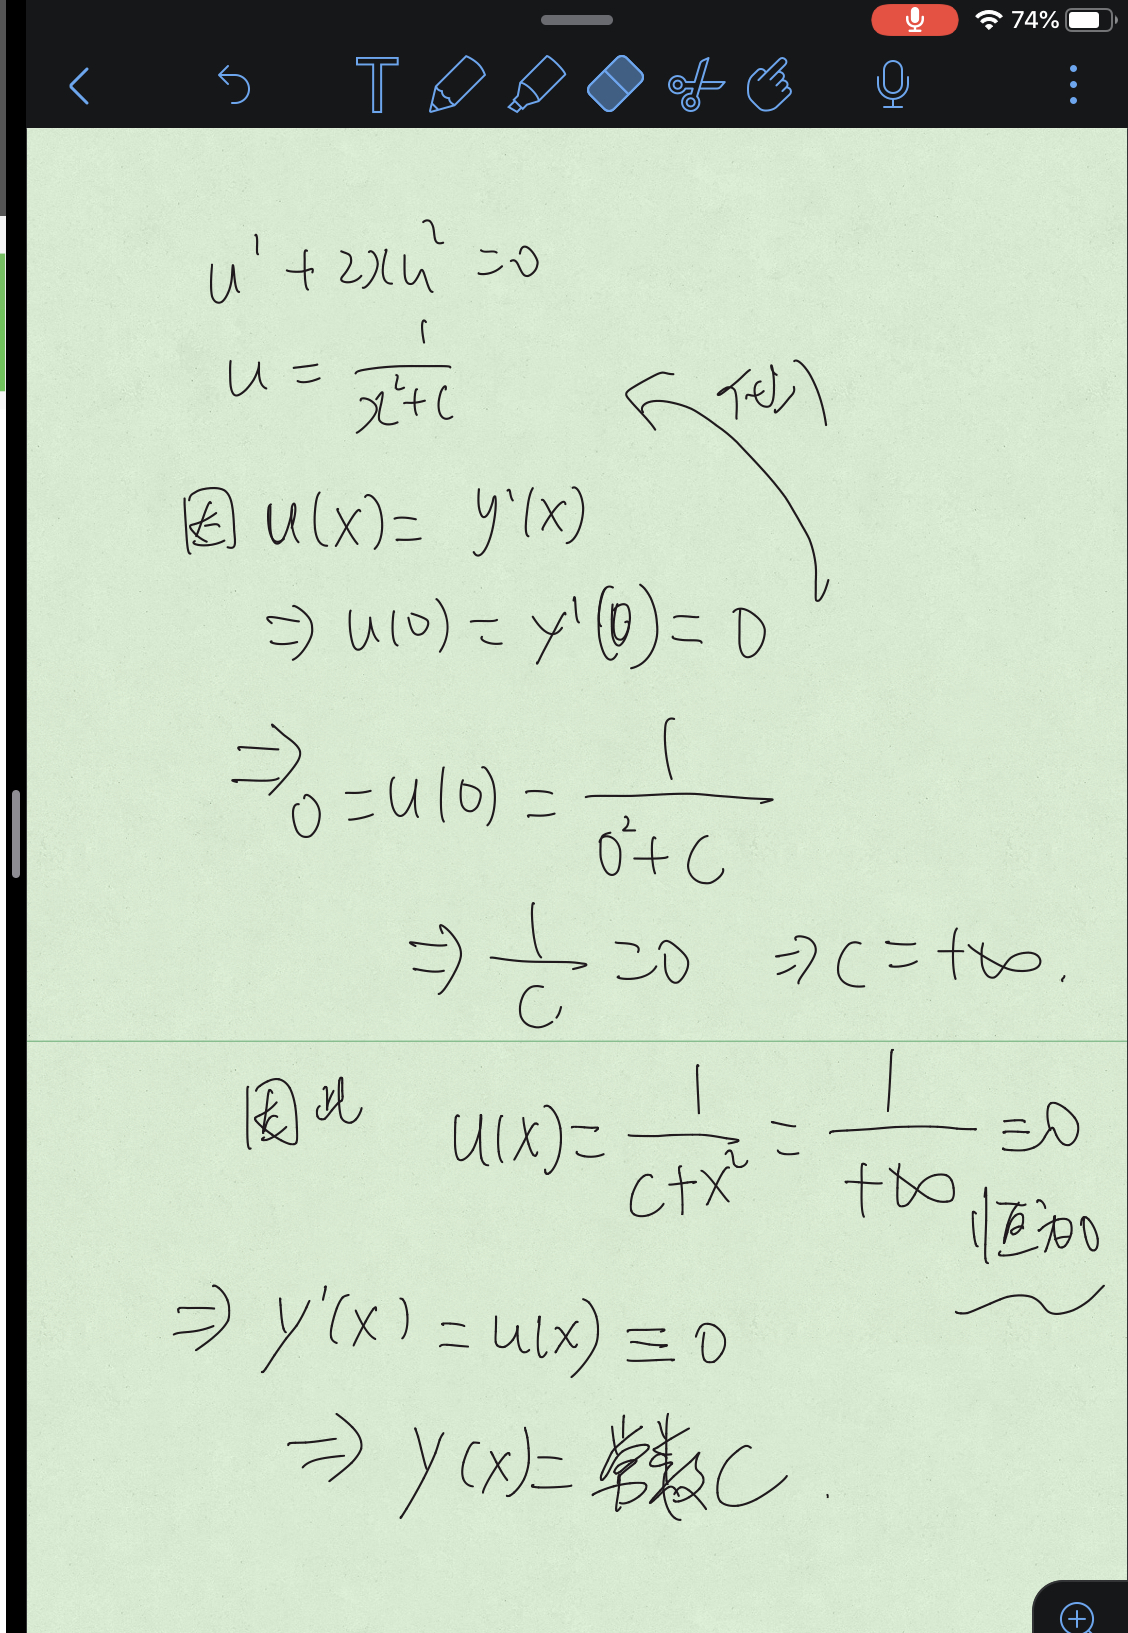 74%
T
u' + 2xu² = 0
u = 1/(x²+c)
代入
因 u(x) = y'(x)
⇒ u(0) = y'(0) = 0
⇒ 0 = u(0) = 1/(0²+C)
⇒ 1/C = 0 ⇒ C = +∞.
因此 u(x) = 1/(C+x²) = 1/+∞ ≡ 0
恒为0
⇒ y'(x) = u(x) ≡ 0
⇒ y(x) = 常数C.